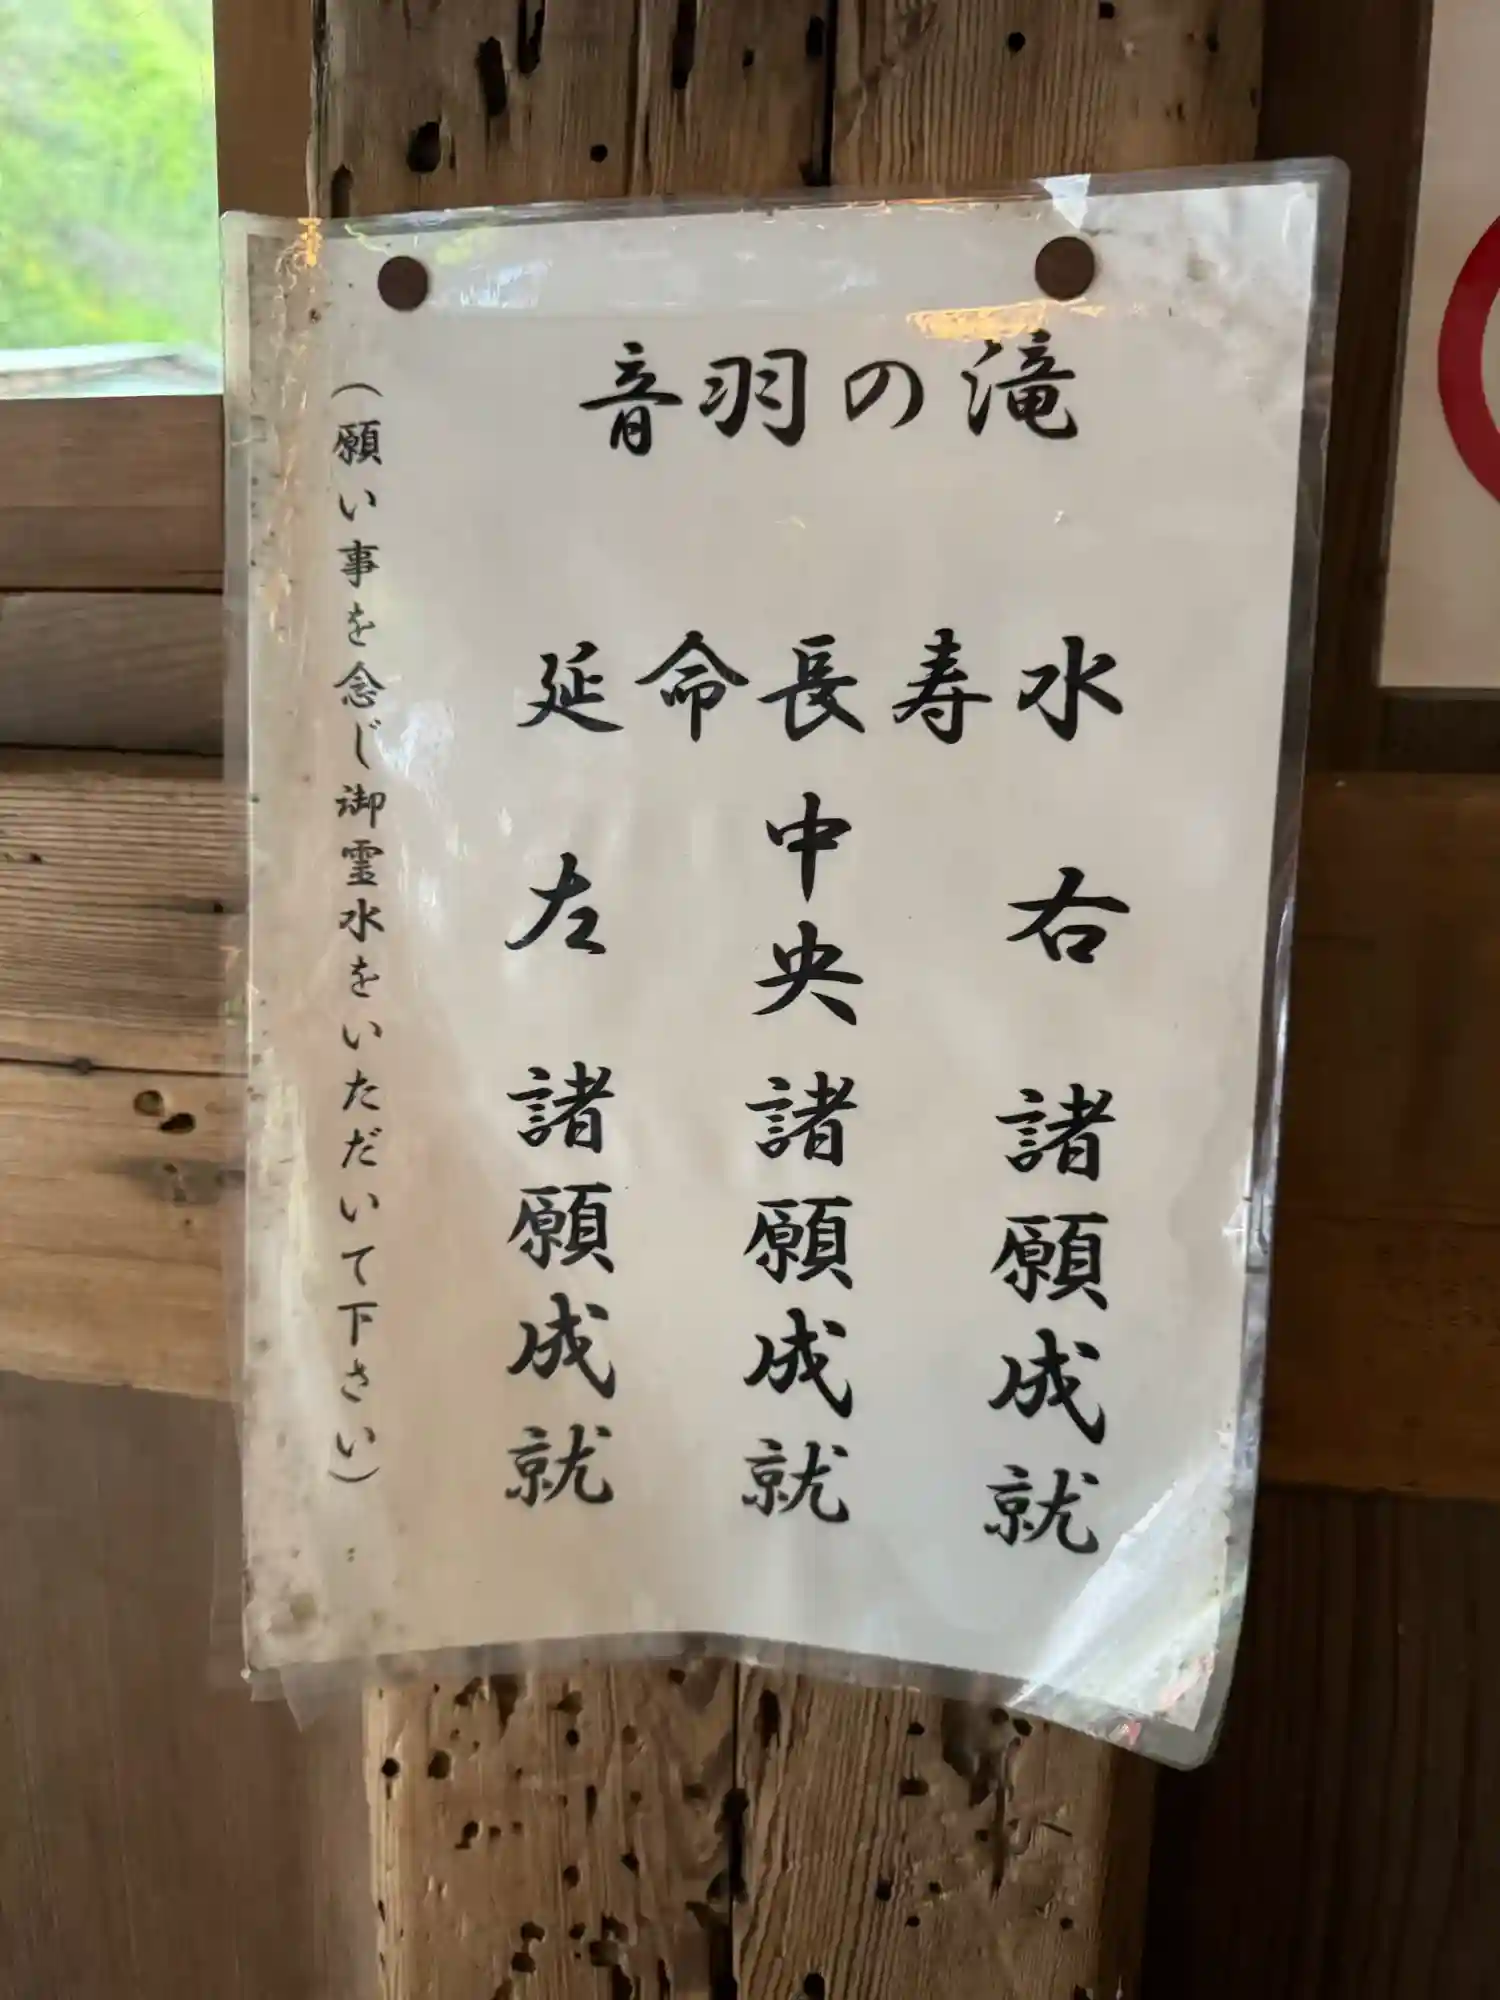 音羽の滝
延命長寿水
右 諸願成就
中央 諸願成就
左 諸願成就
（願い事を念じ御霊水をいただいて下さい）